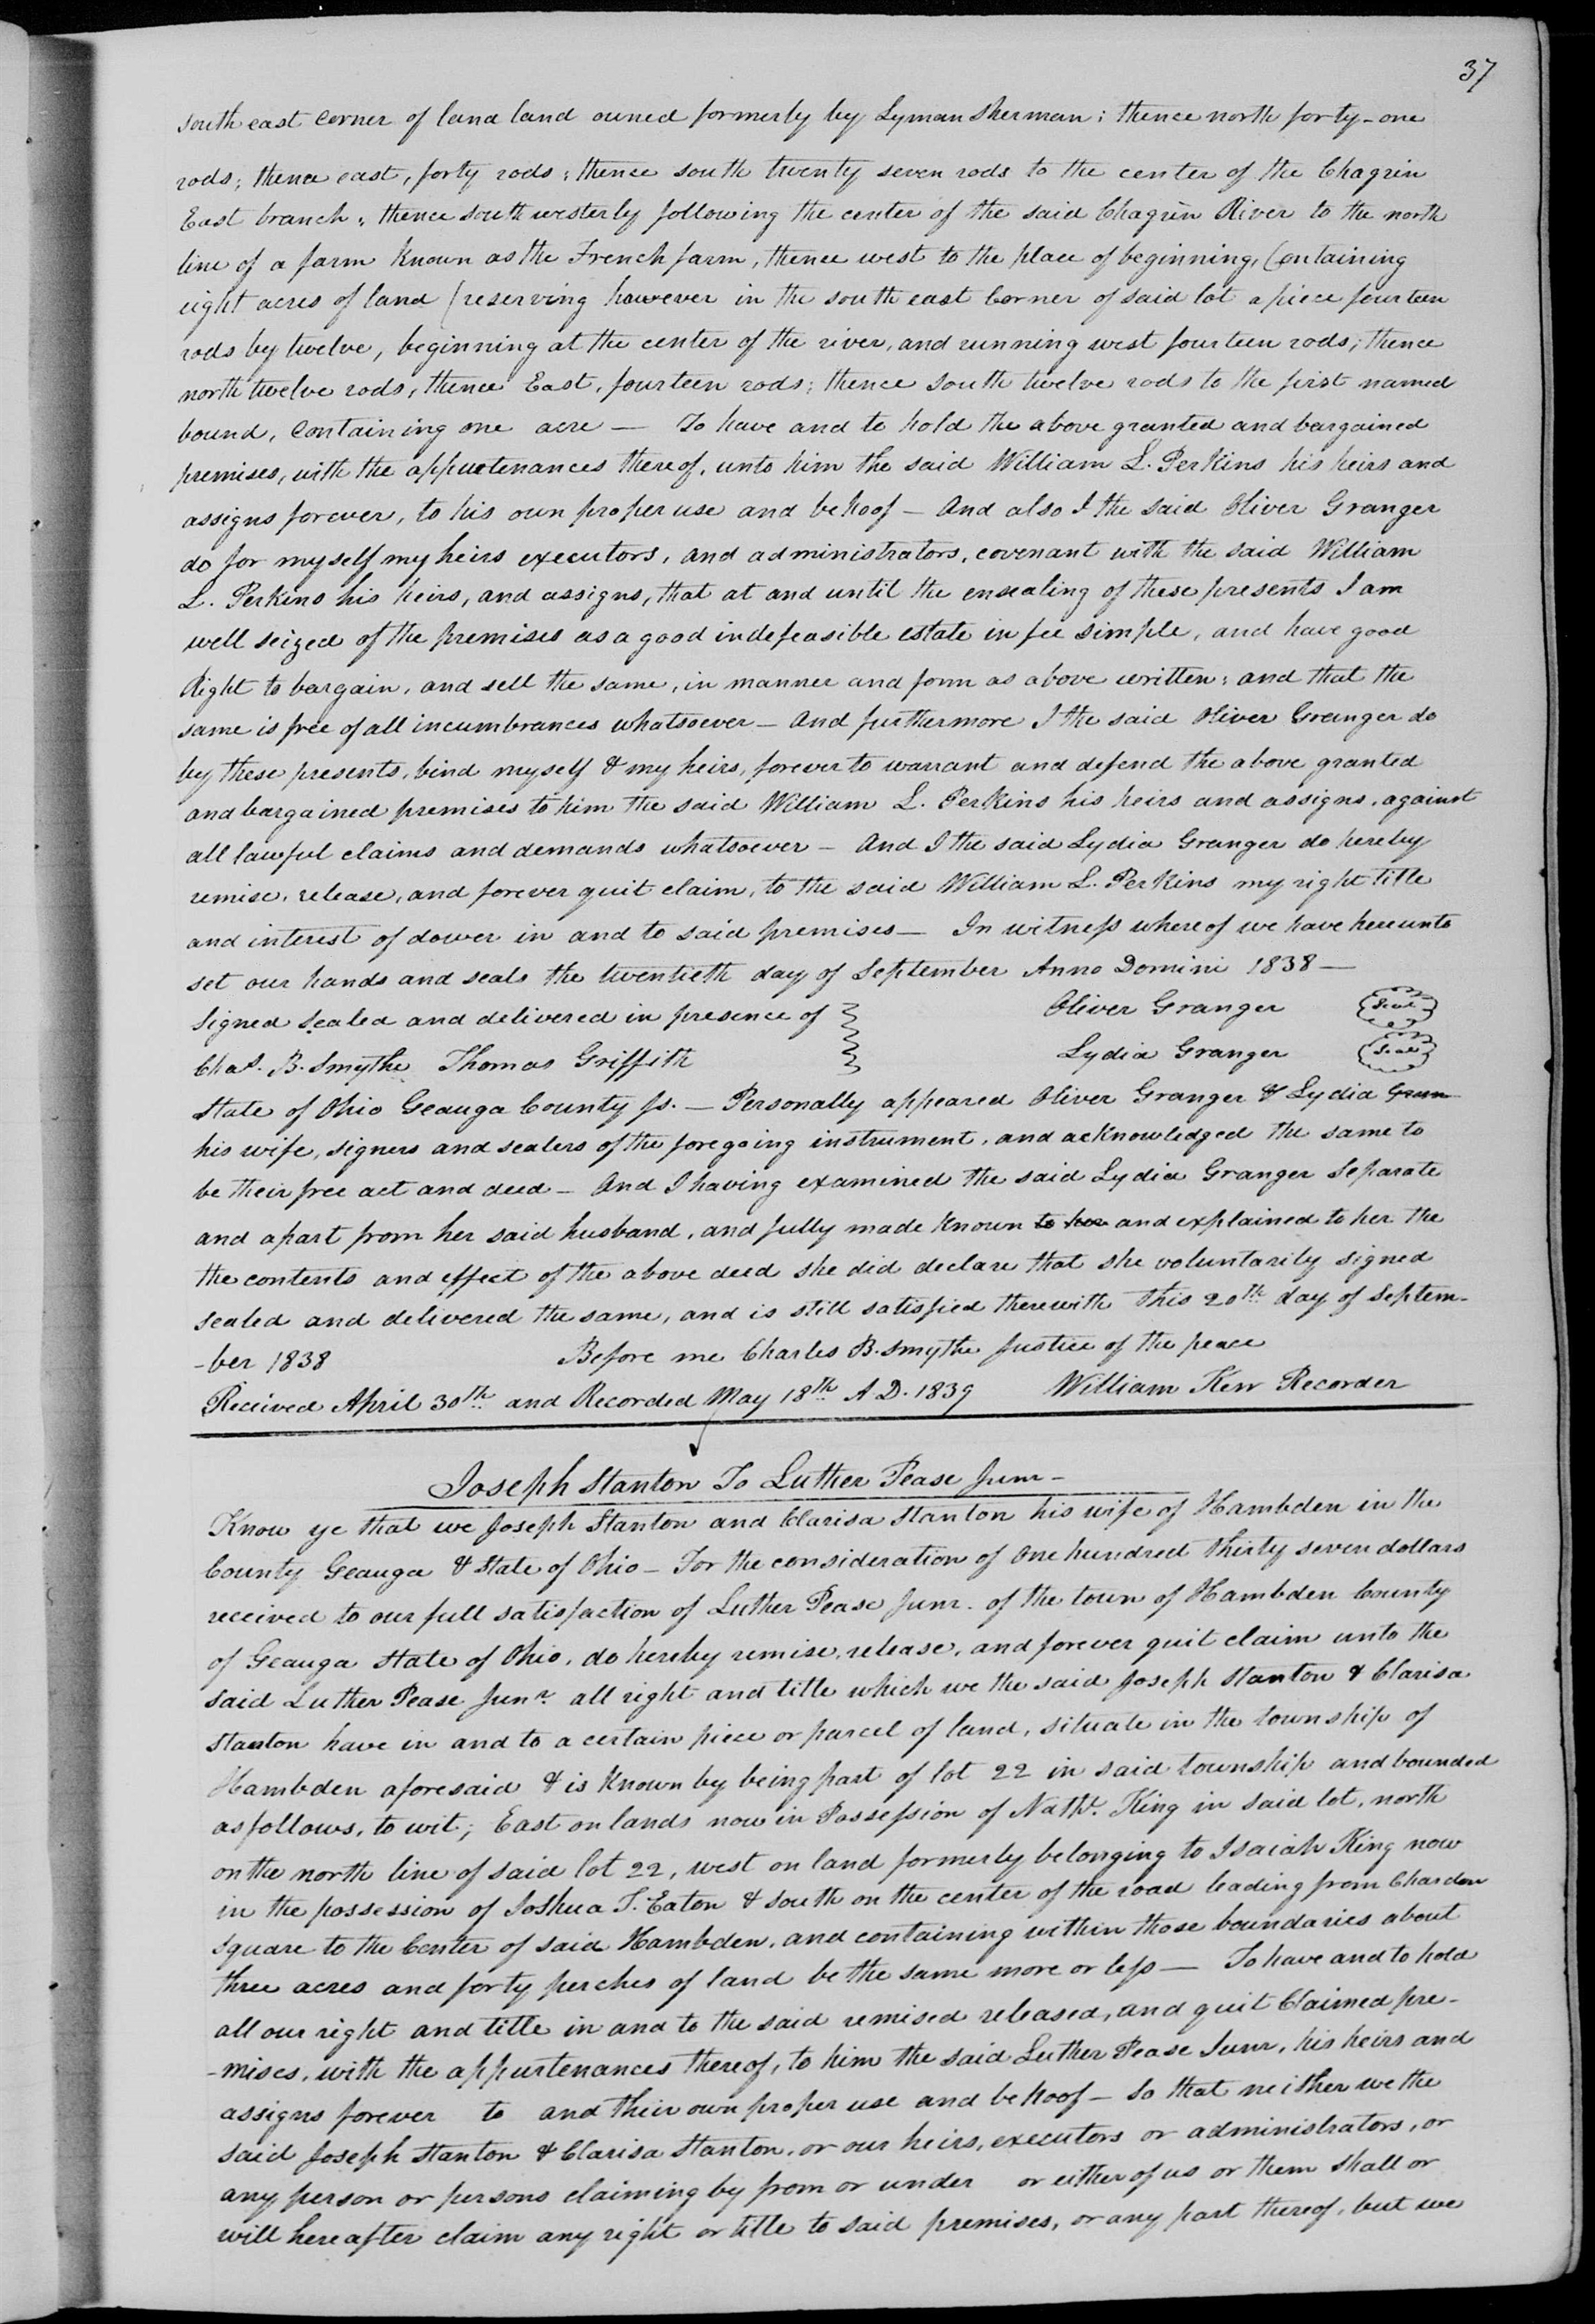 37
south east corner of land land owned formerly by Lyman Sherman; thence north forty-one
rods; thence east, forty rods; thence south twenty seven rods to the center of the Chagrin
East branch; thence south westerly following the center of the said Chagrin River to the north
line of a farm Known as the French farm, thence west to the place of beginning, Containing
eight acres of land (reserving however in the south east Corner of said lot a piece fourteen
rods by twelve, beginning at the center of the river, and running west fourteen rods; thence
north twelve rods, thence East, fourteen rods; thence south twelve rods to the first named
bound, Containing one acre — To have and to hold the above granted and bargained
premises, with the appurtenances thereof, unto him the said William L. Perkins his heirs and
assigns forever, to his own proper use and behoof — And also I the said Oliver Granger
do for myself my heirs executors, and administrators, covenant with the said William
L. Perkins his heirs, and assigns, that at and until the ensealing of these presents I am
well seized of the premises as a good indefeasible estate in fee simple, and have good
Right to bargain, and sell the same, in manner and form as above written; and that the
same is free of all incumbrances whatsoever — And furthermore I the said Oliver Granger do
by these presents, bind myself & my heirs, forever to warrant and defend the above granted
and bargained premises to him the said William L. Perkins his heirs and assigns, against
all lawful claims and demands whatsoever — And I the said Lydia Granger do hereby
remise, release, and forever quit claim, to the said William L. Perkins my right title
and interest of dower in and to said premises — In witness whereof we have hereunto
set our hands and seals the twentieth day of September Anno Domini 1838 —
Signed Sealed and delivered in presence of Oliver Granger Seal
Chas. B. Smythe Thomas Griffith Lydia Granger Seal
State of Ohio Geauga County ss. — Personally appeared Oliver Granger & Lydia Gran
his wife, signers and sealers of the foregoing instrument, and acknowledged the same to
be their free act and deed — And I having examined the said Lydia Granger Separate
and apart from her said husband, and fully made known to her and explained to her the
the contents and effect of the above deed she did declare that she voluntarily signed
sealed and delivered the same, and is still satisfied therewith this 20th day of Septem-
-ber 1838 Before me Charles B. Smythe Justice of the peace
Received April 30th and Recorded May 18th A D. 1839 William Kerr Recorder
Joseph Stanton To Luther Pease Junr —
Know ye that we Joseph Stanton and Clarisa Stanton his wife of Hambden in the
County Geauga & State of Ohio — For the consideration of One hundred thirty seven dollars
received to our full satisfaction of Luther Pease Junr. of the town of Hambden County
of Geauga State of Ohio, do hereby remise, release, and forever quit claim unto the
said Luther Pease Junr. all right and title which we the said Joseph Stanton & Clarisa
Stanton have in and to a certain piece or parcel of land, situate in the township of
Hambden aforesaid & is known by being part of lot 22 in said township and bounded
as follows, to wit; East on lands now in Possession of Nathl. King in said lot, north
on the north line of said lot 22, west on land formerly belonging to Isaiah King now
in the possession of Joshua T. Eaton & south on the center of the road leading from Chardon
square to the Center of said Hambden, and containing within those boundaries about
three acres and forty perches of land be the same more or less — To have and to hold
all our right and title in and to the said remised released, and quit Claimed pre-
-mises, with the appurtenances thereof, to him the said Luther Pease Junr, his heirs and
assigns forever to and their own proper use and behoof — So that neither we the
said Joseph Stanton & Clarisa Stanton, or our heirs, executors or administrators, or
any person or persons claiming by from or under or either of us or them shall or
will hereafter claim any right or title to said premises, or any part thereof, but we